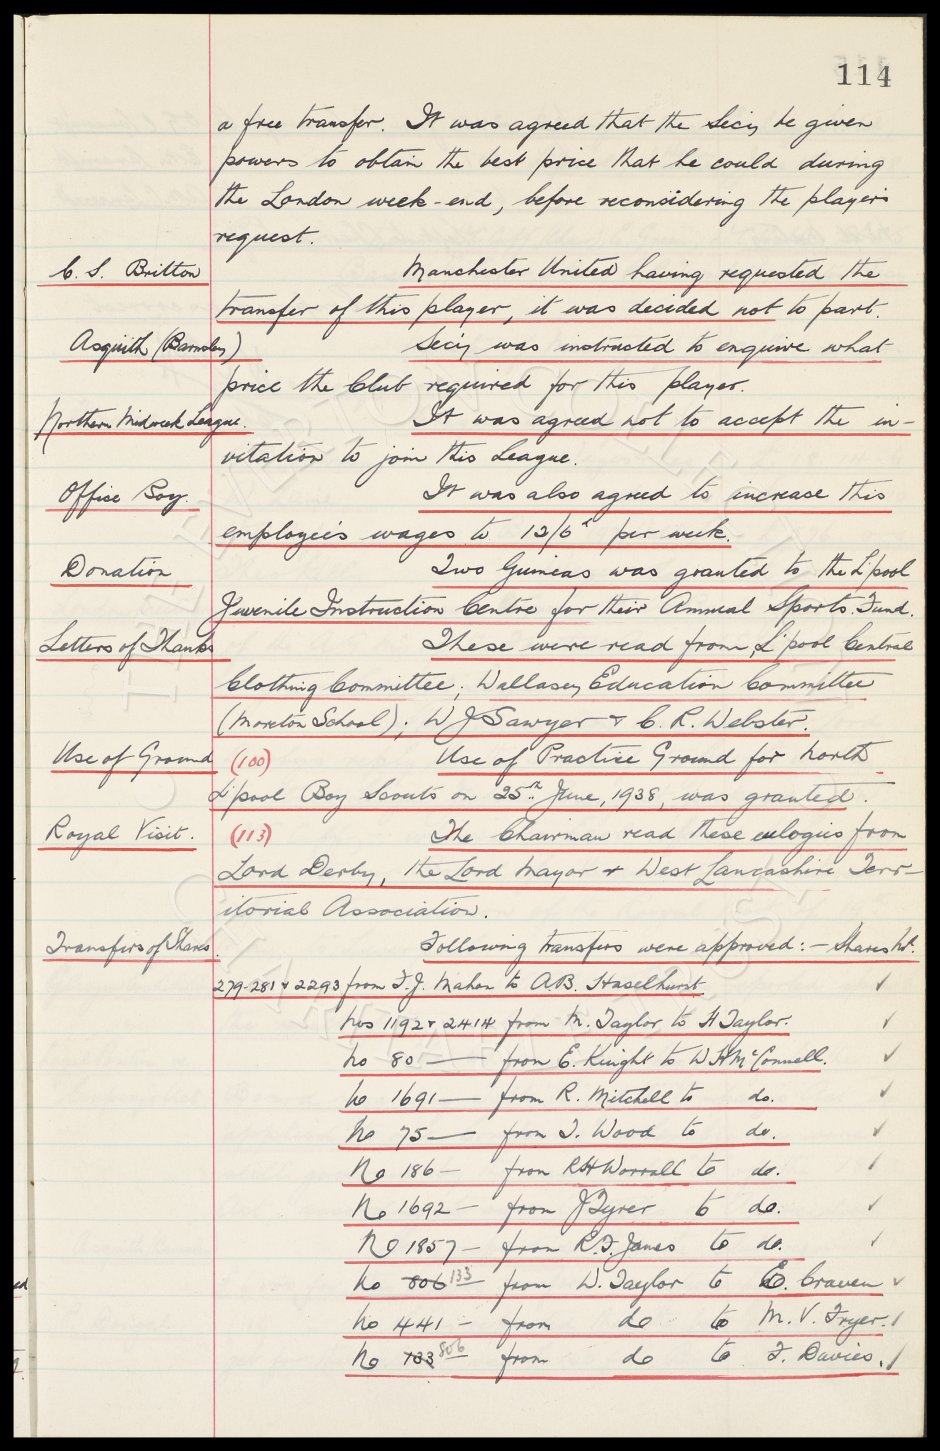 114
a free transfer. It was agreed that the Secy be given
powers to obtain the best price that he could during
the London week-end, before reconsidering the player's
request.
C. S. Britton Manchester United having requested the
transfer of this player, it was decided not to part.
Asquith (Barnsley) Secy was instructed to enquire what
price the Club required for this player.
Northern Midweek League. It was agreed not to accept the in-
vitation to join this League.
Office Boy. It was also agreed to increase this
employee's wages to 12/6d per week.
Donation Two Guineas was granted to the L'pool
Juvenile Instruction Centre for their Annual Sports Fund.
Letters of Thanks These were read from L'pool Central
Clothing Committee; Wallasey Education Committee
(Moreton School); W J Sawyer & C. R. Webster.
Use of Ground (100) Use of Practice Ground for North
L'pool Boy Scouts on 25th June, 1938, was granted.
Royal Visit. (113) The Chairman read these eulogies from
Lord Derby, the Lord Mayor & West Lancashire Terr-
itorial Association.
Transfers of Shares. Following transfers were approved:- Shares No.
279-281 & 2293 from F. J. Mahon to A.B. Haselhurst ✓
Nos 1192 & 2414 from M. Taylor to H Taylor. ✓
No 80 — from E. Knight to W H McConnell. ✓
No 1691 — from R. Mitchell to do. ✓
No 75 — from T. Wood to do. ✓
No 186 — from R H Worrall to do. ✓
No 1692 — from J Tyrer to do. ✓
No 1857 — from R. T. Jones to do. ✓
No 806 133 from W. Taylor to E. Craven ✓
No 441 — from do to M. V. Fryer. ✓
No 133 806 from do to F. Davies. ✓